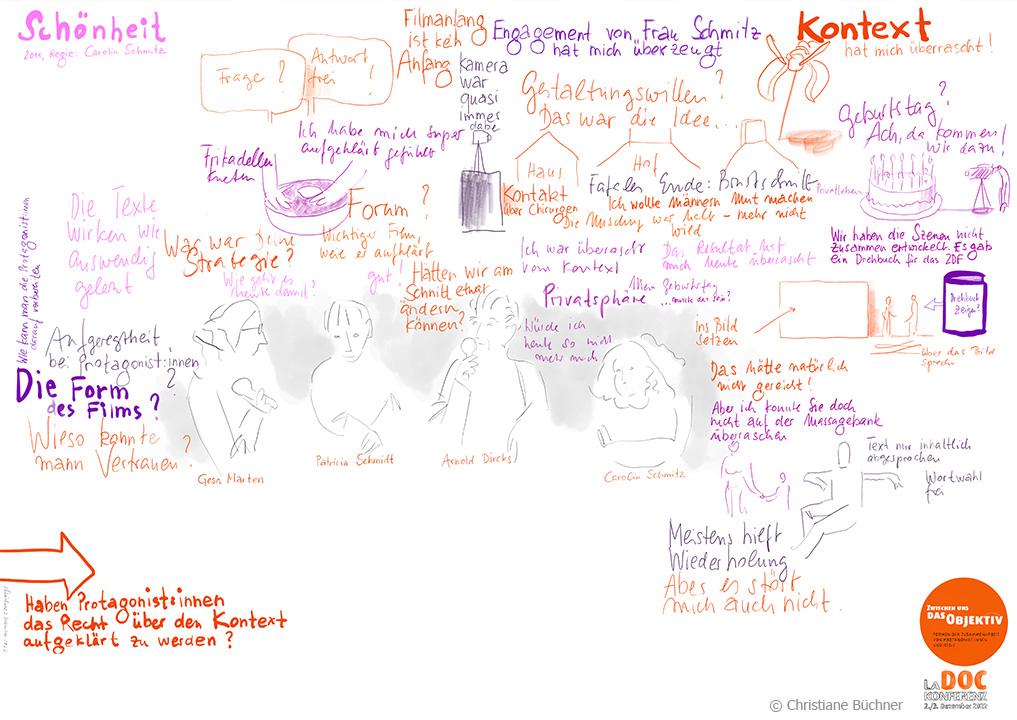 Schönheit
2011, Regie: Carolin Schmitz
Frage?
Antwort
frei !
Filmanfang
ist kein
Anfang
Kamera
war
quasi
immer
dabei
Engagement von Frau Schmitz
hat mich überzeugt
Kontext
hat mich überrascht!
Gestaltungswillen?
Das war die Idee...
Haus
Hof
Geburtstag?
Ach, da kommen
wir dazu!
Privatleben
Ich habe mich super
aufgeklärt gefühlt
Frikadellen
kneten
Kontakt
über Chirurgen
Ich wollte Männern Mut machen
Die Mischung war
mehr nicht
Wir haben die Szenen nicht
zusammen entwickelt. Es gab
ein Drehbuch für das ZDF
Wie kann man die Protagonist:innen
darauf vorbereiten
Die Texte
wirken wie
auswendig
gelernt
Was war Deine
Strategie?
Forum?
Wichtiger Film,
weil er aufklärt
gut!
Hätten wir am
Schnitt etwas
ändern
können?
Ich war überrascht
vom Kontext
Das Resultat hat
mich heute überrascht
Mein Geburtstag
Privatsphäre
Würde ich
heute so nicht
mehr
Drehbuch
zeigen?
ins Bild
setzen
über das Bild
sprechen
Das hätte natürlich
nicht gereicht!
Aber ich konnte Sie doch
nicht auf der Massagebank
überraschen
Aufgeregtheit
bei Protagonist:innen
?
Die Form
des Films?
Wieso konnte
mann Vertrauen?
Gesa Marten
Patricia Schmidt
Arnold Dircks
Carolin Schmitz
Text nur inhaltlich
abgesprochen
Wortwahl
frei
Meistens hilft
Wiederholung
Aber es stört
mich auch nicht.
Haben Protagonist:innen
das Recht über den Kontext
aufgeklärt zu werden?
Zwischen uns
das Objektiv
Formen der Zusammenarbeit
von Protagonist:innen
und Regie
LaDOC
Konferenz
© Christiane Büchner